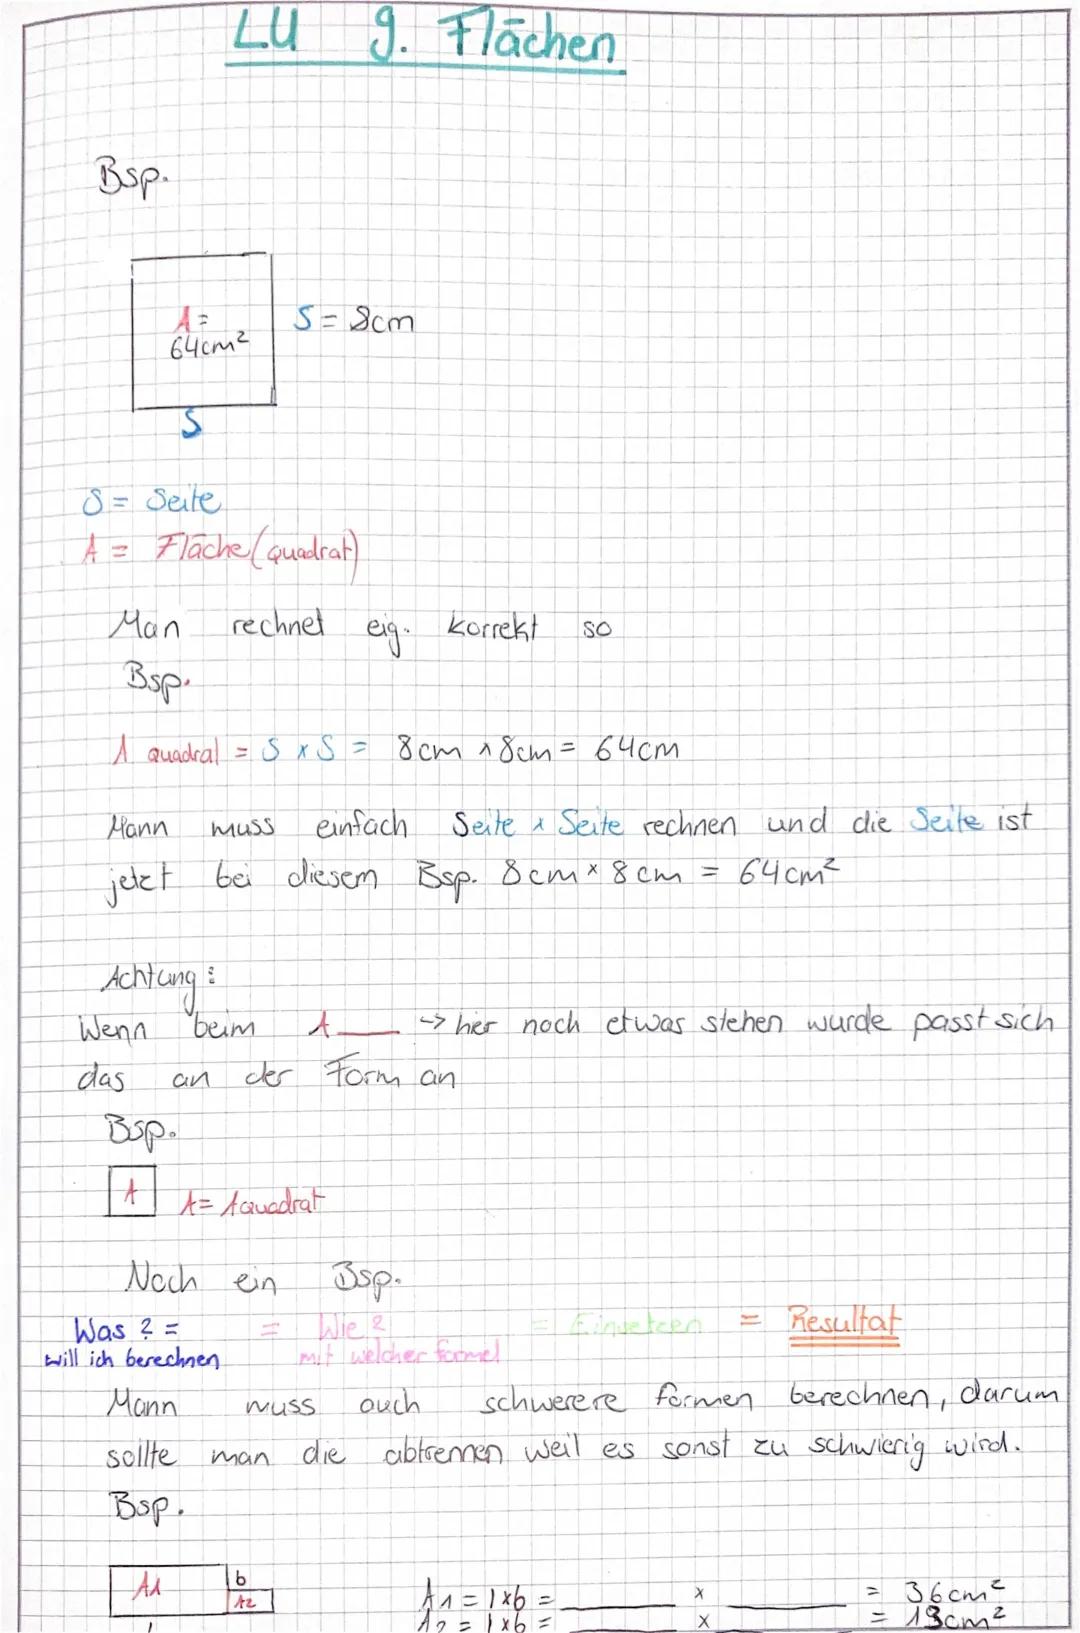 LU 9. Flächen
Bsp.
A =
64cm²
S = 8cm
S
S = Seite
A = Fläche (quadrat)
Man rechnet eig. korrekt so
Bsp.
A quadrat = S x S = 8cm x 8cm = 64cm
Mann muss einfach Seite x Seite rechnen und die Seite ist
jetzt bei diesem Bsp. 8cm x 8cm = 64cm²
Achtung:
Wenn beim A____ -> hier noch etwas stehen wurde passt sich
das an der Form an
Bsp.
A
A = Aquadrat
Noch ein Bsp.
Was? = = Wie? = Einsetzen = Resultat
will ich berechnen mit welcher formel
Mann muss auch schwerere formen berechnen, darum
sollte man die abtrennen weil es sonst zu schwierig wird.
Bsp.
A1 b
A2
l
A1 = l x b = ____ x ____ = 36cm²
A2 = l x b = x = cm²